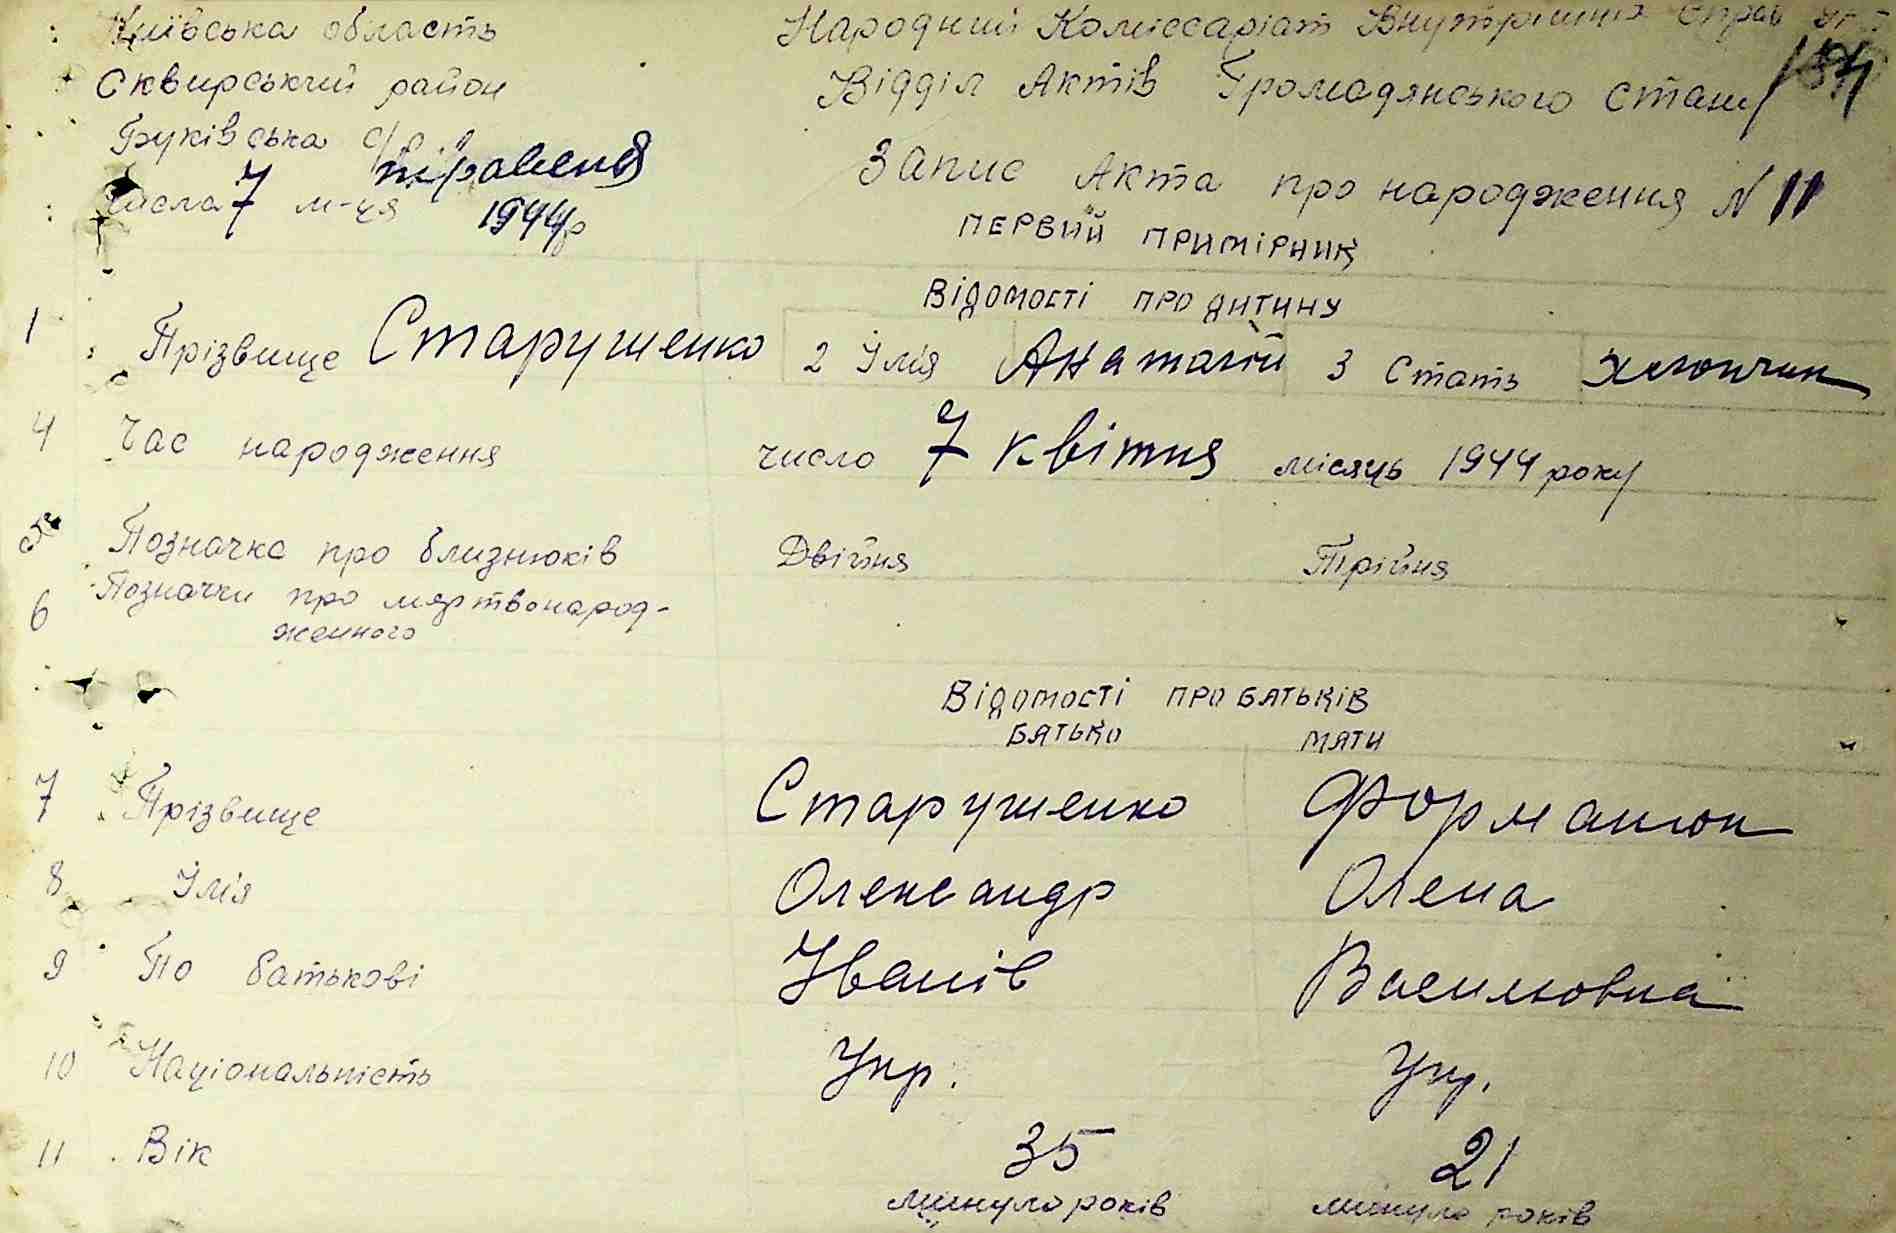 Київська область Народний Коміссаріат Внутрішніх Справ
Сквирський район Відділ Актів Громадянського стану
Буківська с/рада
числа 7 м-ця травеня 1944 р Запис Акта про народження N 11
ПЕРВИЙ ПРИМІРНИК
Відомості про дитину
1 Прізвище Старушенко 2 Імія Анатолій 3 Стать хлопчик
4 Час народження число 7 квітня місяць 1944 року
5 Позначка про близнюків Двійня Трійня
6 Позначки про мяртвонарод-
женного
Відомості про батьків
батько мати
7 Прізвище Старушенко Форманюк
8 Імія Олександр Олена
9 По батькові Іванів Василювна
10 Національність Укр. Укр.
11 Вік 35 21
минуло років минуло років